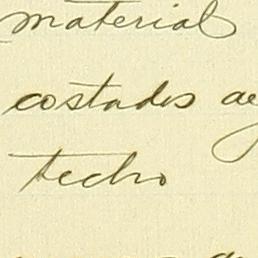 material
costados
techo